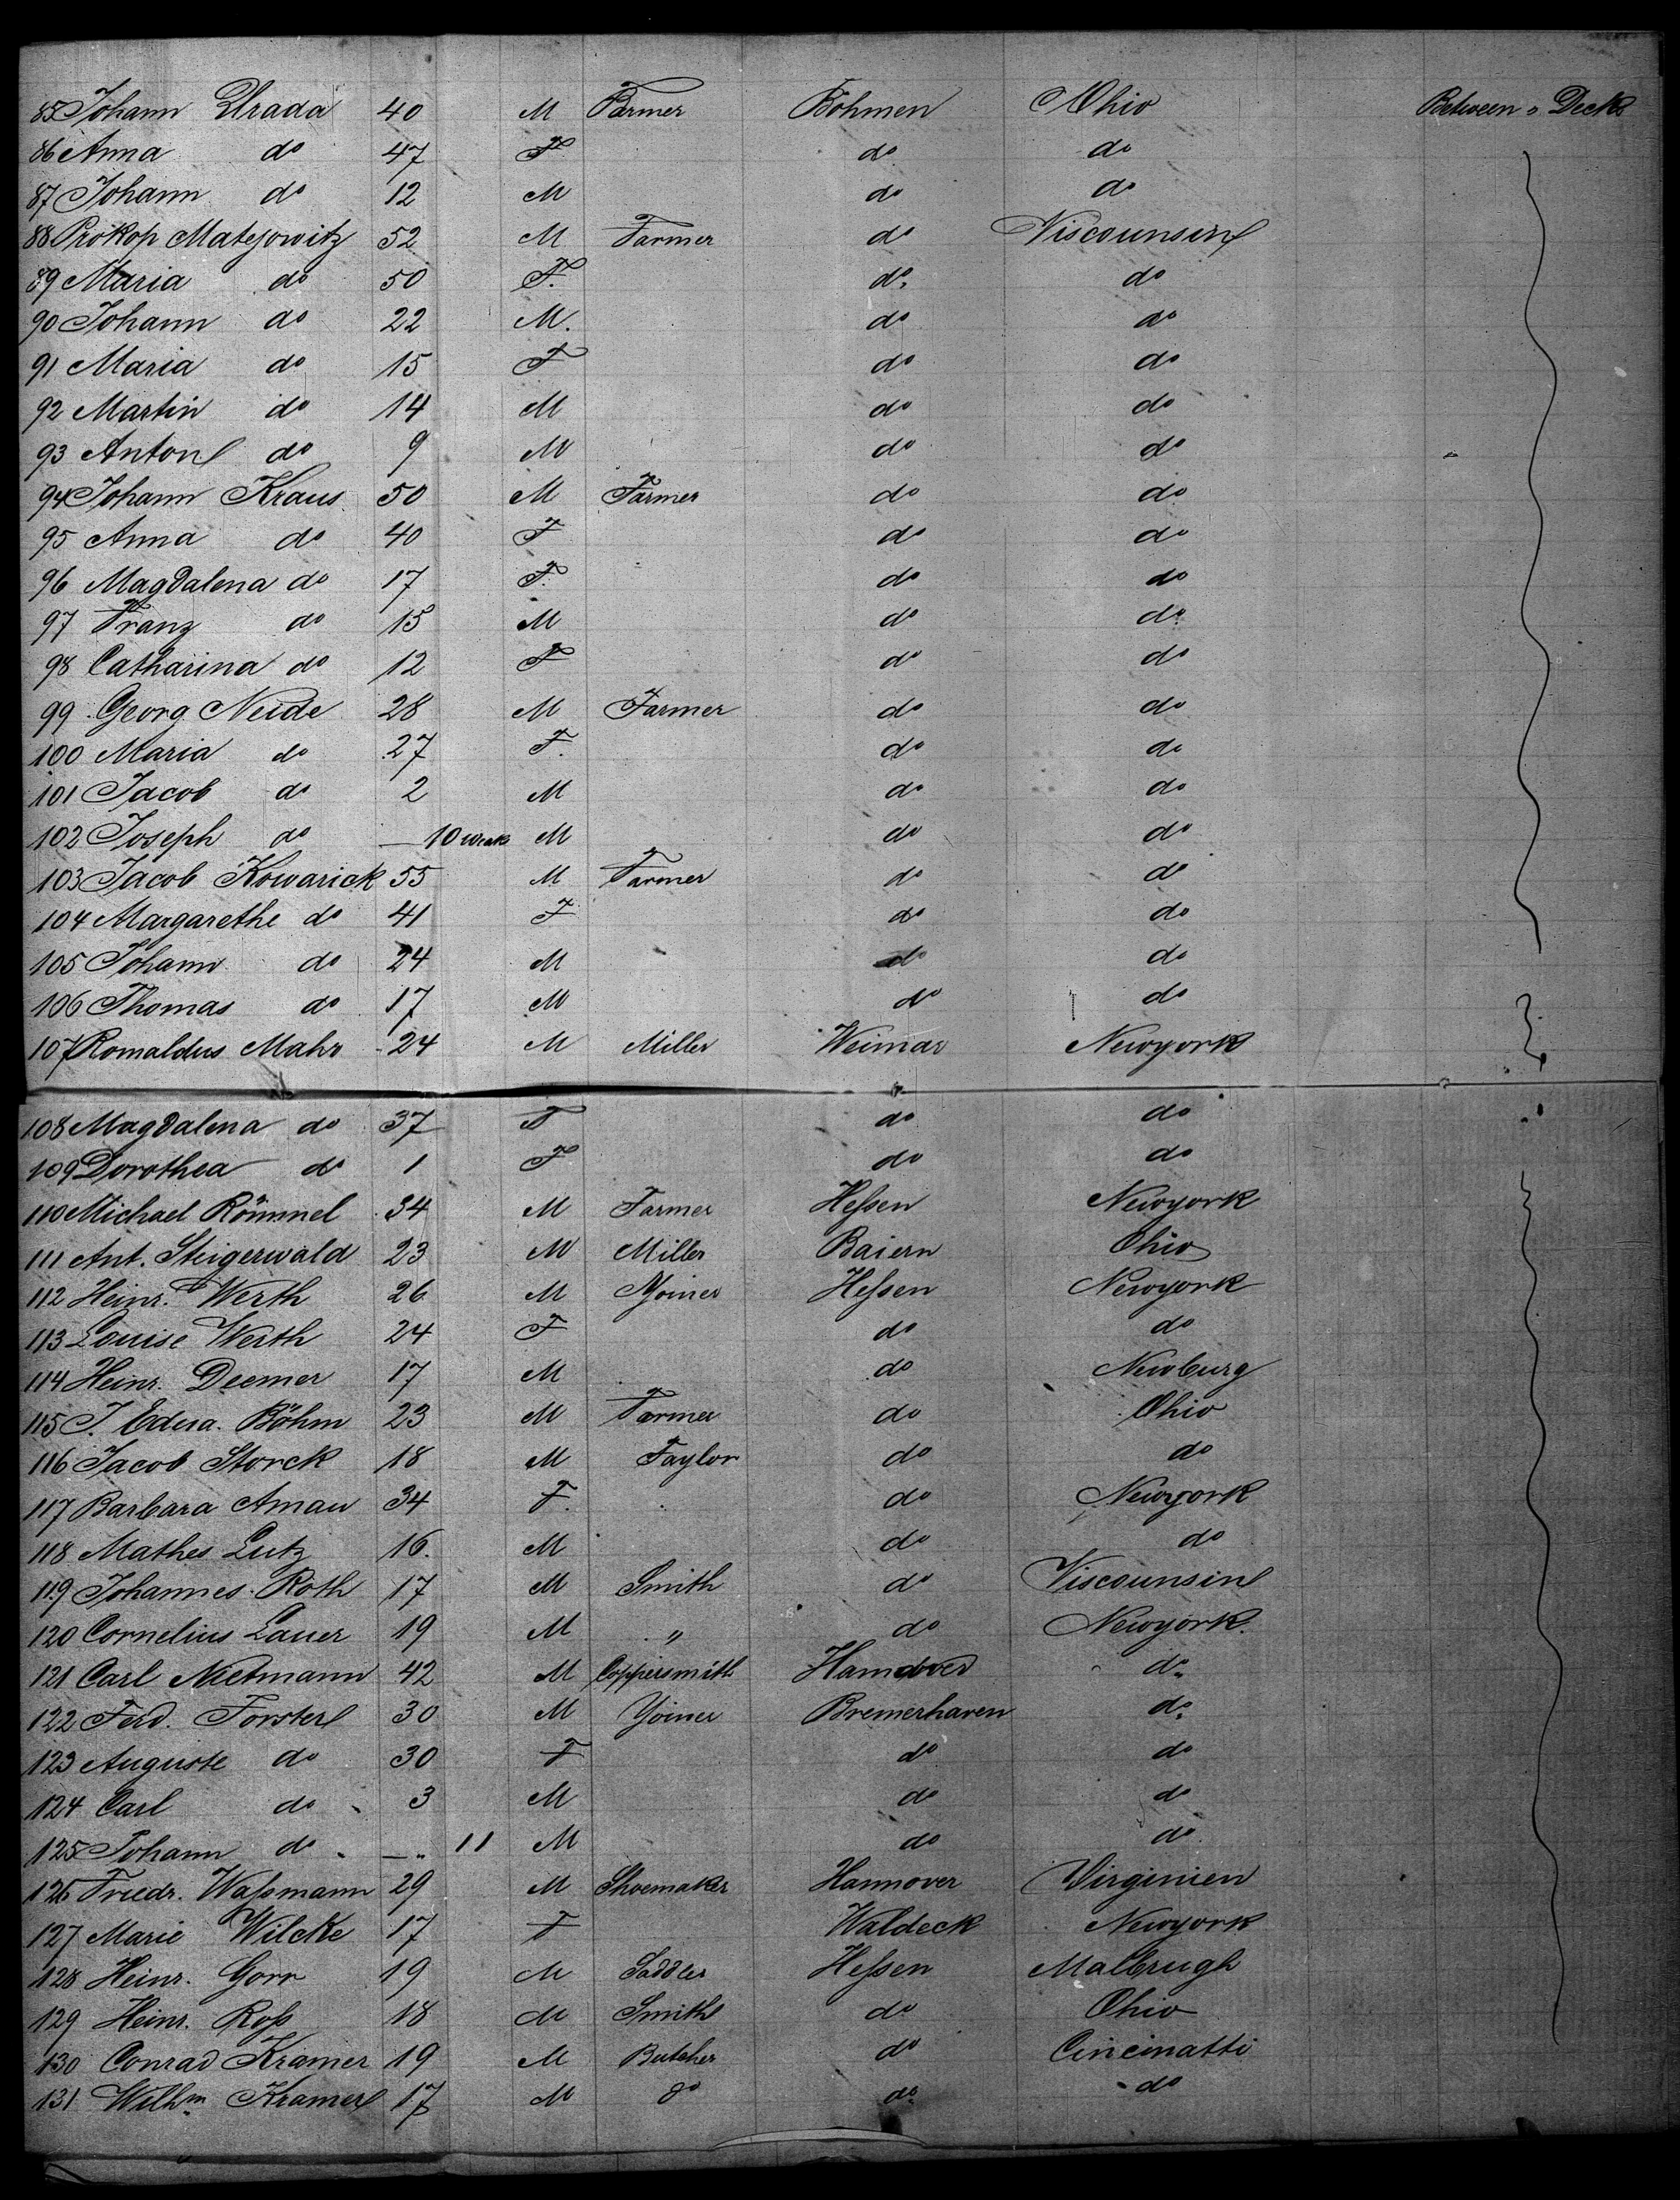 85 Johann Urada 40 M Farmer Böhmen Ohio Between Deck
86 Anna do 47 F do do
87 Johann do 12 M do do
88 Prokop Matejowitz 52 M Farmer do Viscounsin
89 Maria do 50 F. do. do
90 Johann do 22 M. do do
91 Maria do 15 F do do
92 Martin do 14 M do do
93 Anton do 9 M do do
94 Johann Kraus 50 M Farmer do do
95 Anna do 40 F do do
96 Magdalena do 17 F. do do
97 Franz do 15 M do do
98 Catharina do 12 F do do
99 Georg Neide 28 M Farmer do do
100 Maria do 27 F. do do
101 Jacob do 2 M do do
102 Joseph do — 10 weak M do do
103 Jacob Kowarick 55 M Farmer do do
104 Margarethe do 41 F do do
105 Johann do 24 M do do
106 Thomas do 17 M do do
107 Romaldus Mahr 24 M Miller Weimar Newyork
108 Magdalena do 37 F do do
109 Dorothea do 1 F do do
110 Michael Römmel 34 M Farmer Hessen Newyork
111 Ant. Steigerwald 23 M Miller Baiern Ohio
112 Heinr. Werth 26 M Yoiner Hessen Newyork
113 Louise Werth 24 F do do
114 Heinr. Deemer 17 M do Newburg
115 J. Edua. Böhm 23 M Farmer do Ohio
116 Jacob Storck 18 M Taylor do do
117 Barbara Amau 34 F. do Newyork
118 Mathes Lutz 16. M do do
119 Johannes Roth 17 M Smith do Viscounsin
120 Cornelius Lauer 19 M " do Newyork.
121 Carl Nietmann 42 M Coppersmith Hannover do
122 Ferd. Forster 30 M Yoiner Bremerhaven do
123 Auguste do 30 F do do
124 Carl do 3 M do do
125 Johann do — 11 M do do
126 Friedr. Wassmann 29 M Shoemaker Hannover Virginien
127 Marie Wilcke 17 F Waldeck Newyork
128 Heinr. Gorr 19 M Saddler Hessen Malbrugh
129 Heinr. Ross 18 M Smith do Ohio
130 Conrad Kramer 19 M Butcher do Cincinatti
131 Wilhm Kramer 17 M do do do